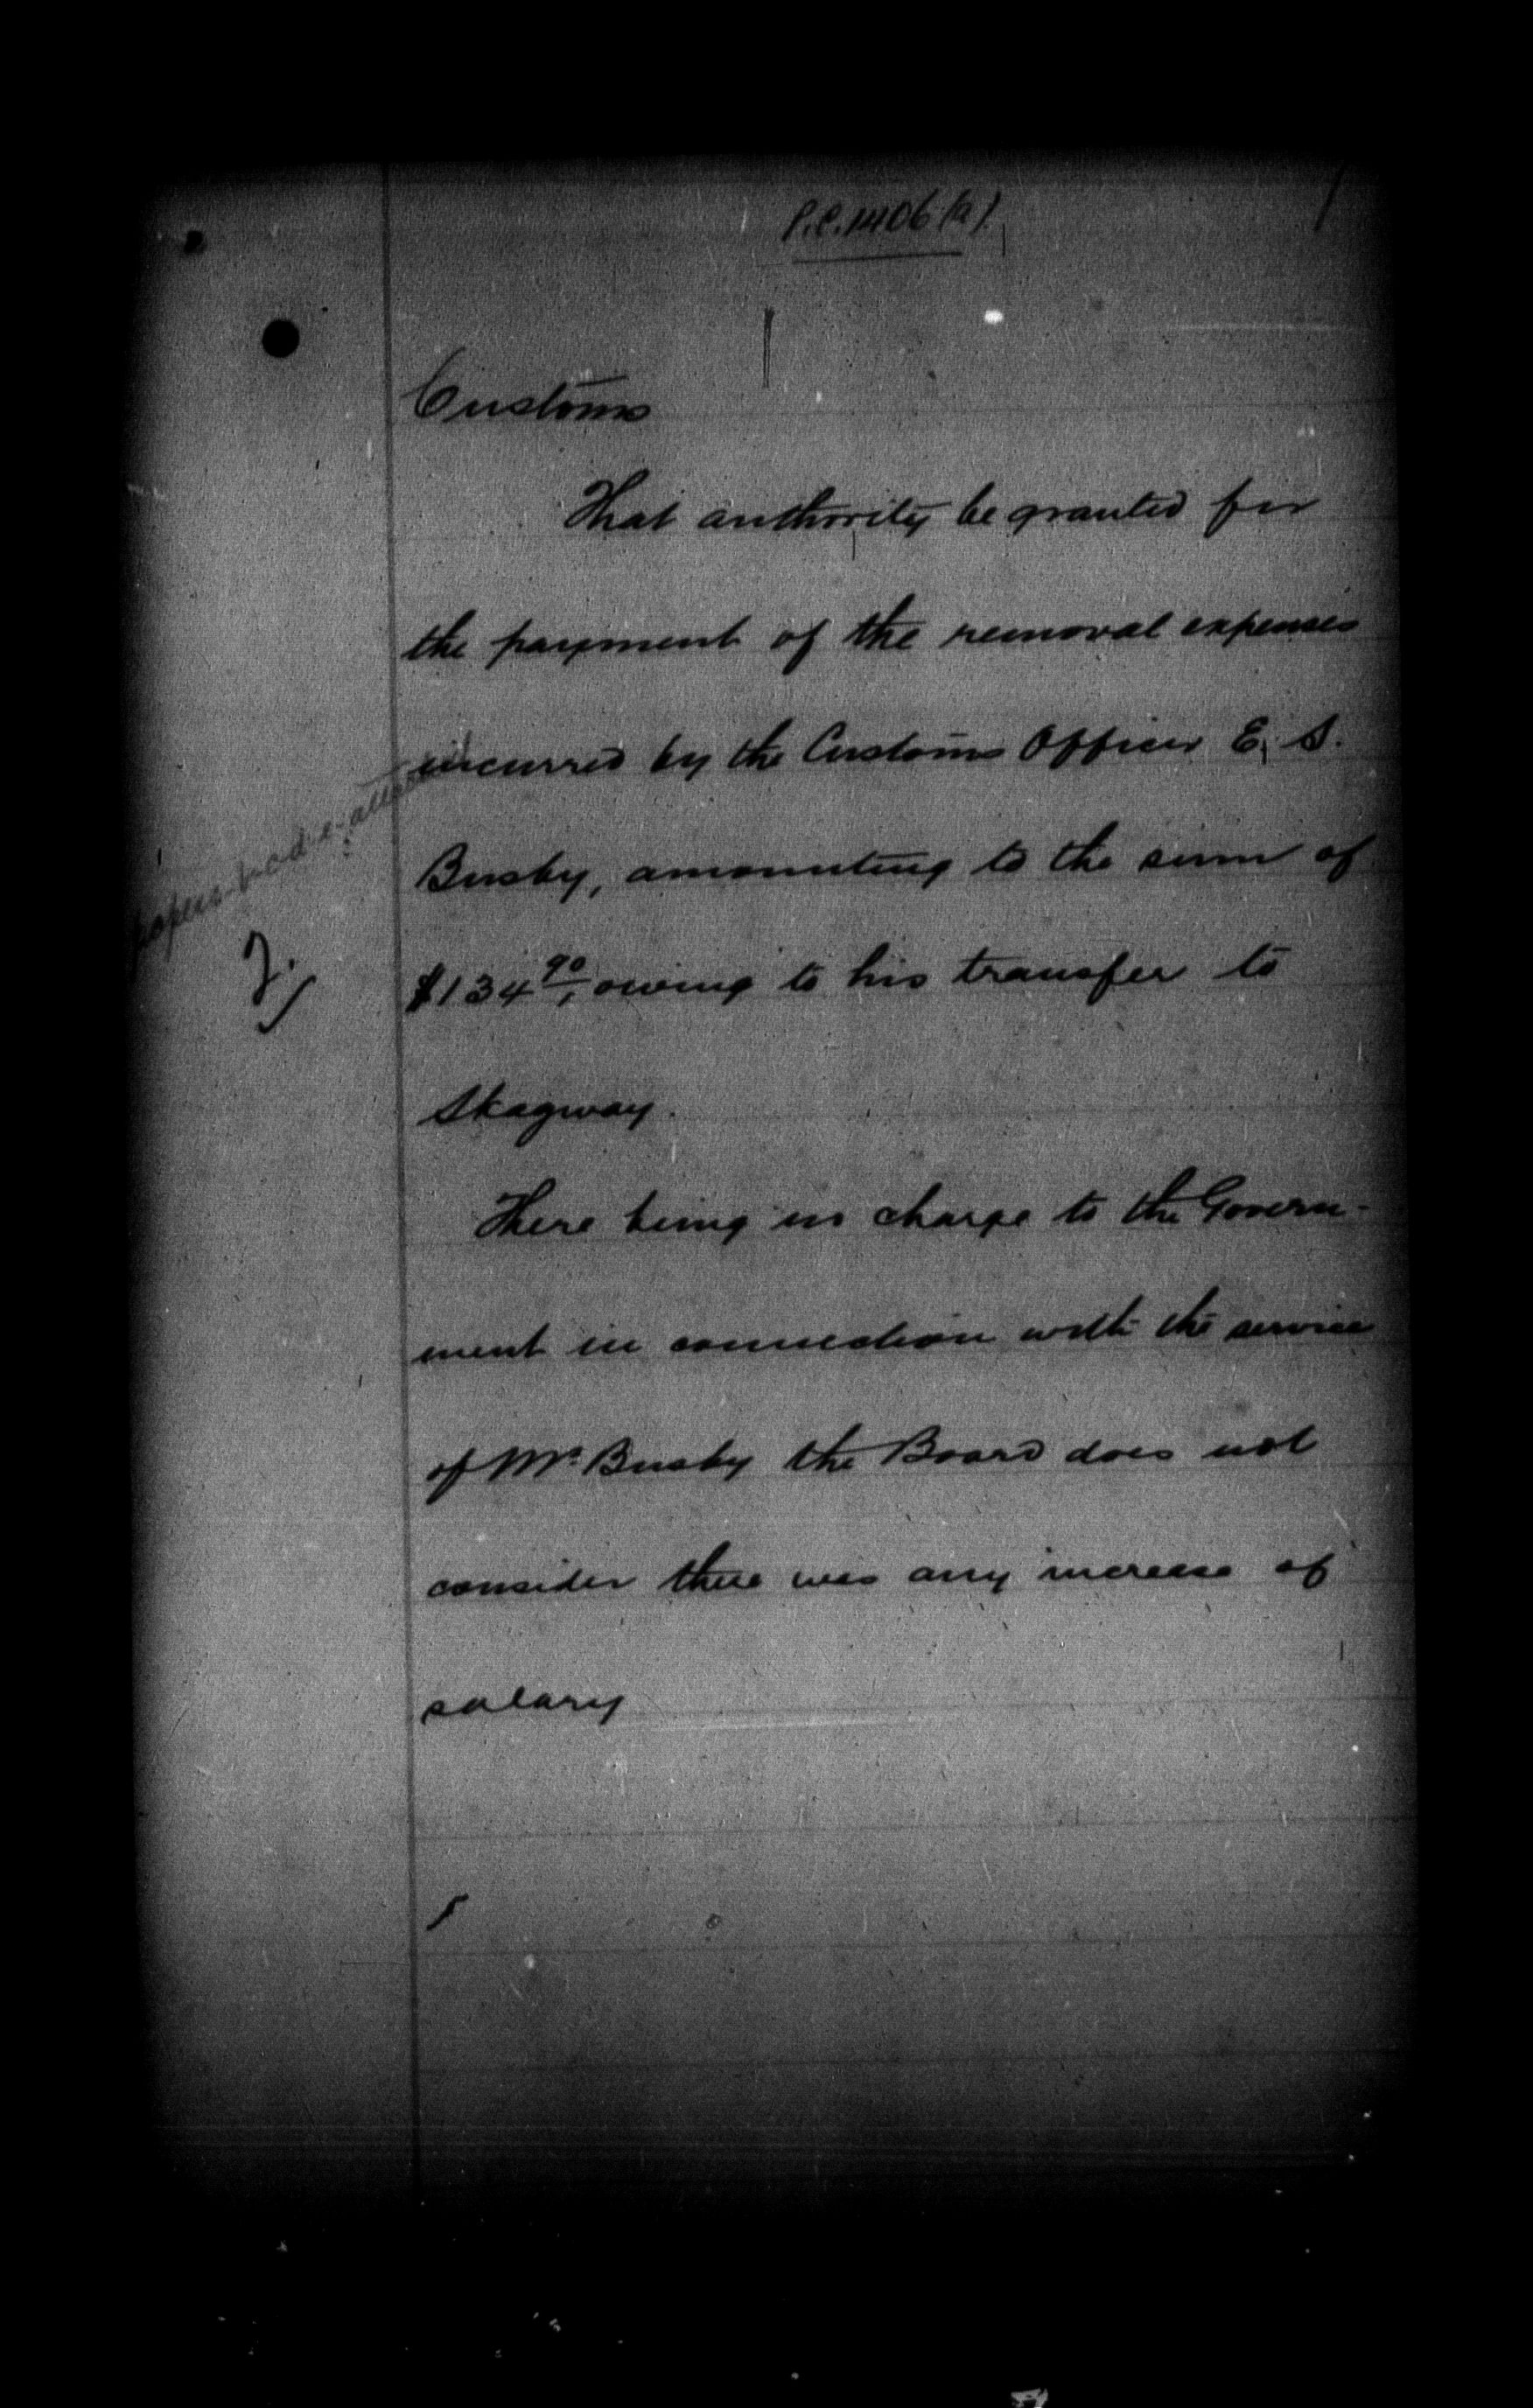 P.C. 1406 (a)
Customs
That authority be granted for
the payment of the removal expenses
incurred by the Customs Officer E. S.
Busby, amounting to the sum of
$134.90, owing to his transfer to
Skagway.
There being no charge to the Govern-
ment in connection with the service
of Mr. Busby the Board does not
consider there was any increase of
salary
papers